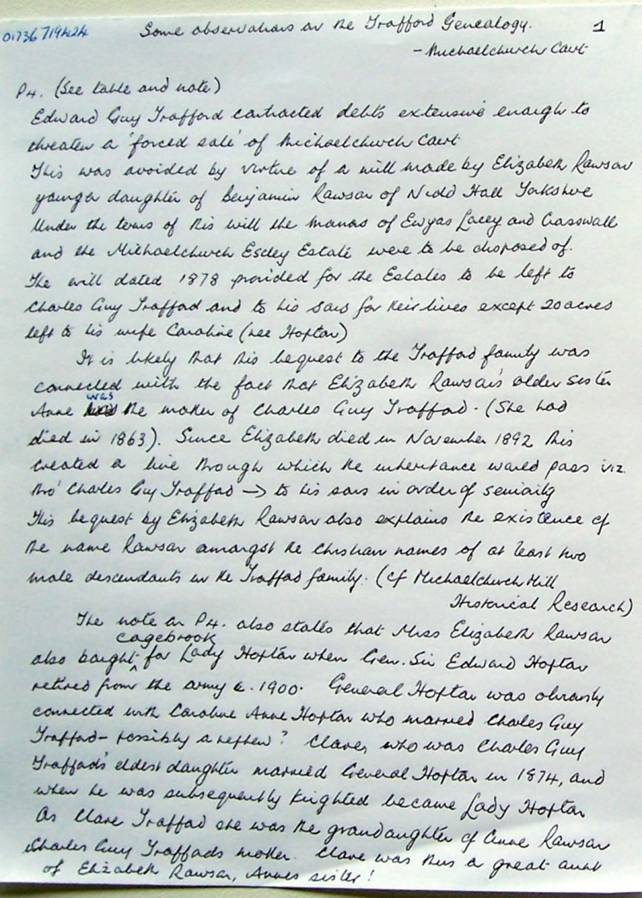 01736 719424
Some observations on the Trafford Genealogy. 1
- Michaelchurch Court
P4. (See table and note)
Edward Guy Trafford contracted debts extensive enough to
threaten a 'forced sale' of Michaelchurch Court
This was avoided by virtue of a will made by Elizabeth Rawson
younger daughter of Benjamin Rawson of Nidd Hall Yorkshire
Under the terms of this will the manors of Ewyas Lacey and Craswall
and the Michaelchurch Escley Estate were to be disposed of.
The will dated 1878 provided for the Estates to be left to
Charles Guy Trafford and to his sons for their lives except 20 acres
left to his wife Caroline (nee Hopton)
It is likely that this bequest to the Trafford family was
connected with the fact that Elizabeth Rawson's older sister
Anne was the mother of Charles Guy Trafford. (She had
died in 1863). Since Elizabeth died in November 1892 this
created a line through which the inheritance would pass viz.
thro' Charles Guy Trafford → to his sons in order of seniority
This bequest by Elizabeth Rawson also explains the existence of
the name Rawson amongst the christian names of at least two
male descendants in the Trafford family. (cf Michaelchurch Mill
Historical Research)
The note on P4. also states that Miss Elizabeth Rawson
also bought cagebrook for Lady Hopton when Gen. Sir Edward Hopton
retired from the army c. 1900. General Hopton was obviously
connected with Caroline Anne Hopton who married Charles Guy
Trafford - possibly a nephew? Clare, who was Charles Guy
Trafford's eldest daughter married General Hopton in 1874, and
when he was subsequently knighted became Lady Hopton
As Clare Trafford she was the grandaughter of Anne Rawson
Charles Guy Traffords mother. Clare was thus a great aunt
of Elizabeth Rawson, Annes sister!